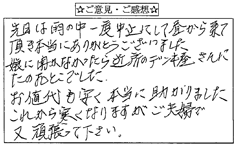 ☆ご意見・ご感想☆
先日は雨の中一度中止にして登から来て
頂き本当にありがとうございました
娘に聞かなかったら近所のデンキ屋さんに
たのむとこでした。
お値代も安く本当に助かりました
これから寒くなりますがご夫婦で
又頑張って下さい。